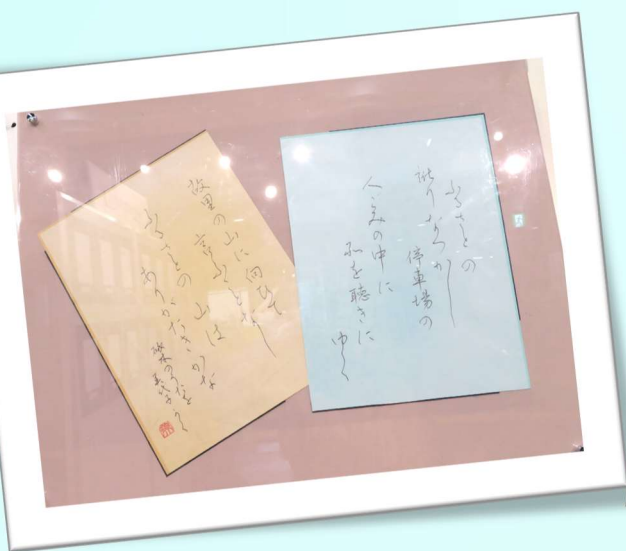 ふるさとの
訛りなつかし
停車場の
人ご美の中に
そを聴きに
ゆく
故里の山に向ひて
言ふことなし
ふるさとの山は
ありがたきかな
啄木のうたを